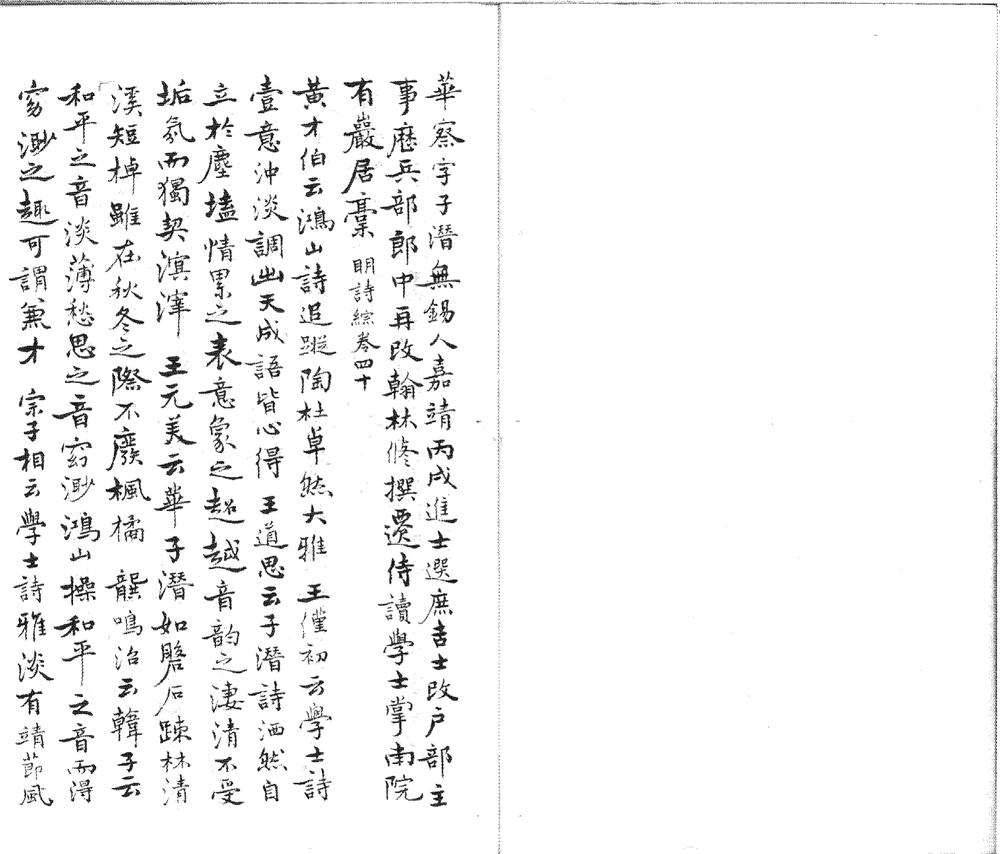 華察字子潛無錫人嘉靖丙戌進士選庶吉士改戶部主
事歷兵部郎中再改翰林修撰遷侍讀學士掌南院
有巖居稾 明詩綜卷四十
黃才伯云鴻山詩追蹤陶杜卓然大雅 王僅初云學士詩
壹意沖淡調出天成語皆心得 王道思云子潛詩洒然自
立於塵壒情累之表意象之超越音韵之淒清不受
垢氛而獨契溟涬 王元美云華子潛如磐石疎林清
溪短棹雖在秋冬之際不廢楓橘 龔鳴治云韓子云
和平之音淡薄愁思之音窈渺鴻山操和平之音而得
窈渺之趣可謂兼才 宗子相云學士詩雅淡有靖節風